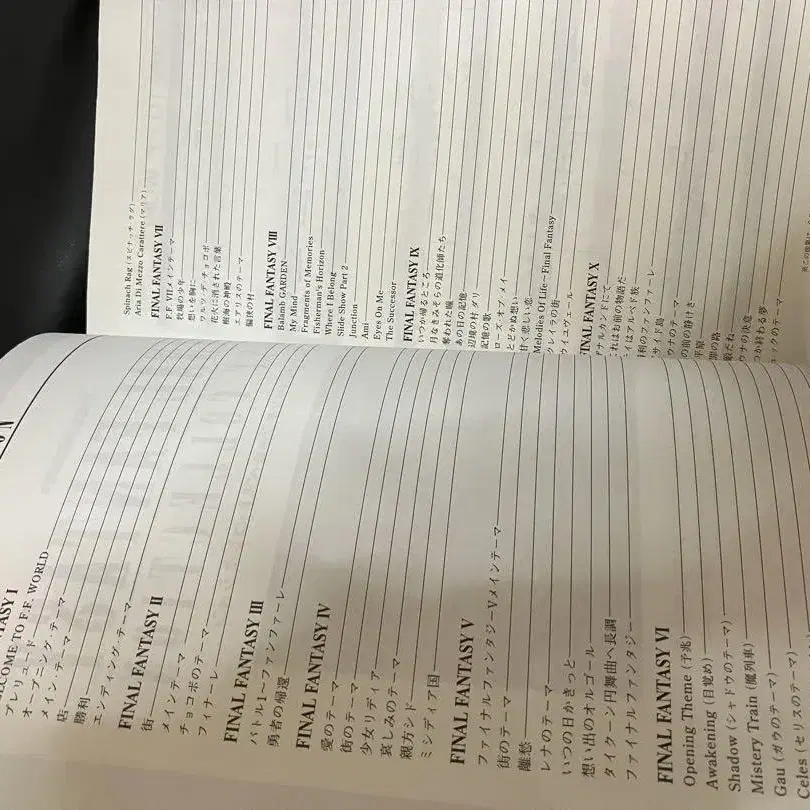 ON
ASY I
COME TO F.F. WORLD
プレリュード
オープニング・テーマ
メイン・テーマ
店
勝利
エンディング・テーマ
FINAL FANTASY II
街
メインテーマ
チョコボのテーマ
フィナーレ
FINAL FANTASY III
バトル1〜ファンファーレ
勇者の帰還
FINAL FANTASY IV
愛のテーマ
街のテーマ
少女リディア
哀しみのテーマ
親方シド
ミシディア国
FINAL FANTASY V
ファイナルファンタジーVメインテーマ
街のテーマ
離愁
レナのテーマ
いつの日かきっと
想い出のオルゴール
タイクーン円舞曲へ長調
ファイナルファンタジー
FINAL FANTASY VI
Opening Theme (予兆)
Awakening (目覚め)
Shadow (シャドウのテーマ)
Mistery Train (魔列車)
Gau (ガウのテーマ)
Celes (セリスのテーマ)
Spinach Rag (スピナッチ・ラグ)
Aria Di Mezzo Carattere (マリア)
FINAL FANTASY VII
F.F.VIIメインテーマ
牧場の少年
想いを胸に
ワルツ・デ・チョコボ
花火に消された言葉
樹海の神殿
エアリスのテーマ
偏狭の村
FINAL FANTASY VIII
Balamb GARDEN
My Mind
Fragments of Memories
Fisherman's Horizon
Where I Belong
Slide Show Part 2
Junction
Ami
Eyes On Me
The Successor
FINAL FANTASY IX
いつか帰るところ
月なきみそらの道化師たち
奪われた瞳
あの日の記憶
辺境の村 ダリ
記憶の歌
ローズ・オブ・メイ
とどかぬ想い
甘く悲しい恋
Melodies Of Life〜Final Fantasy
クレイラの街
ウイユヴェール
FINAL FANTASY X
ザナルカンドにて
これはお前の物語だ
イはアルベド族
利のファンファーレ
サイド島
ウナのテーマ
の前の静けさ
平原
御の路
敵だね
ナの決意
つか終わる夢
ュックのテーマ